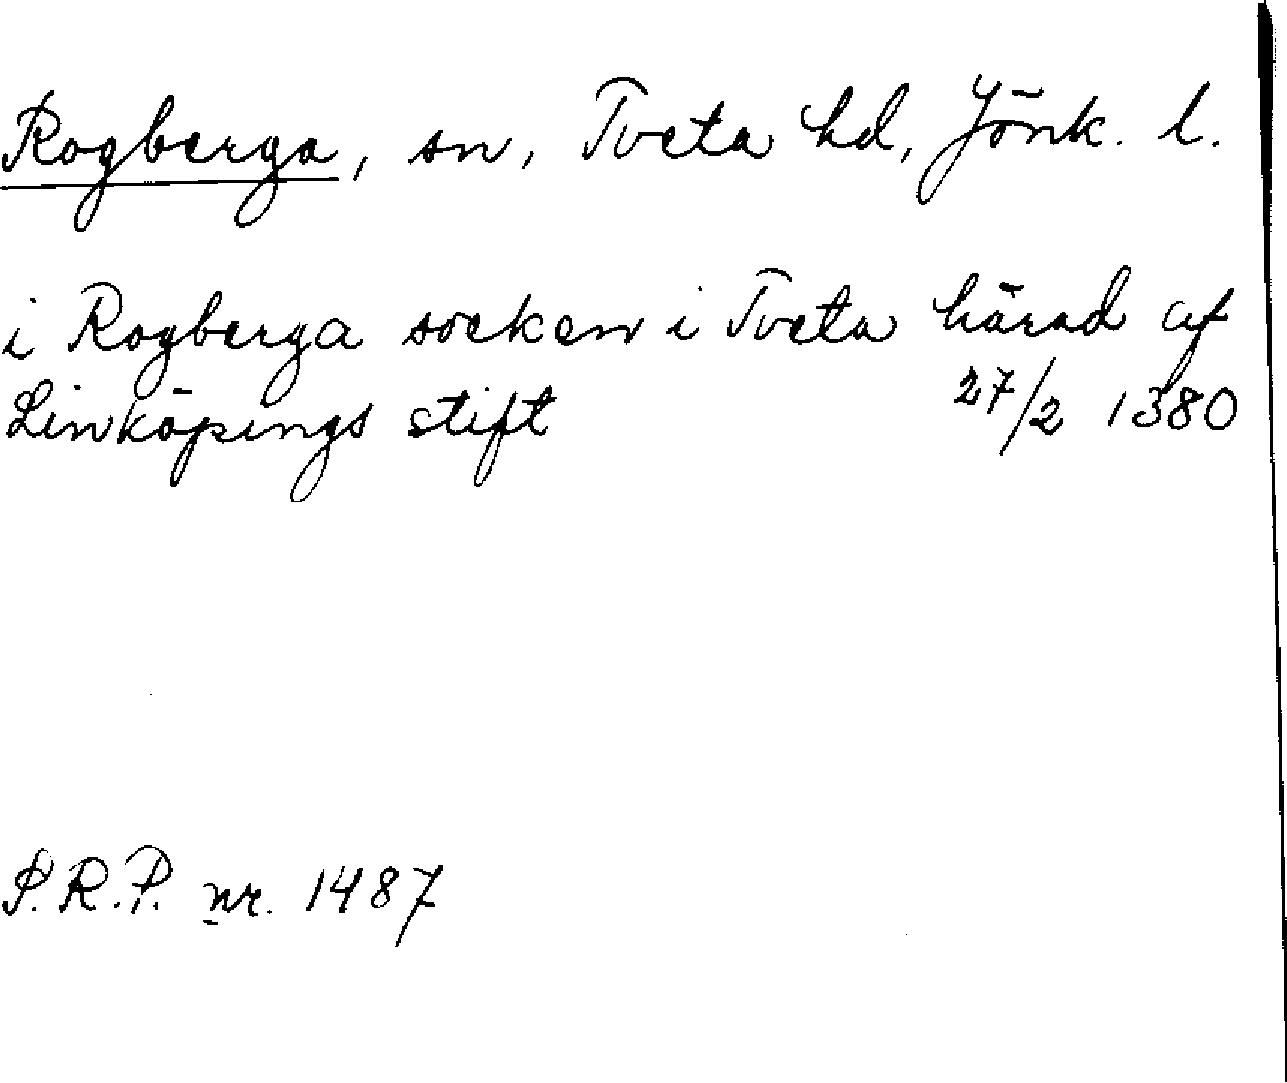 Rogberga, sn, Tveta hd, Jönk. l.
i Rogberga socken i Tveta härad af
Linköpings stift 27/2 1380
S.R.P. nr. 1487